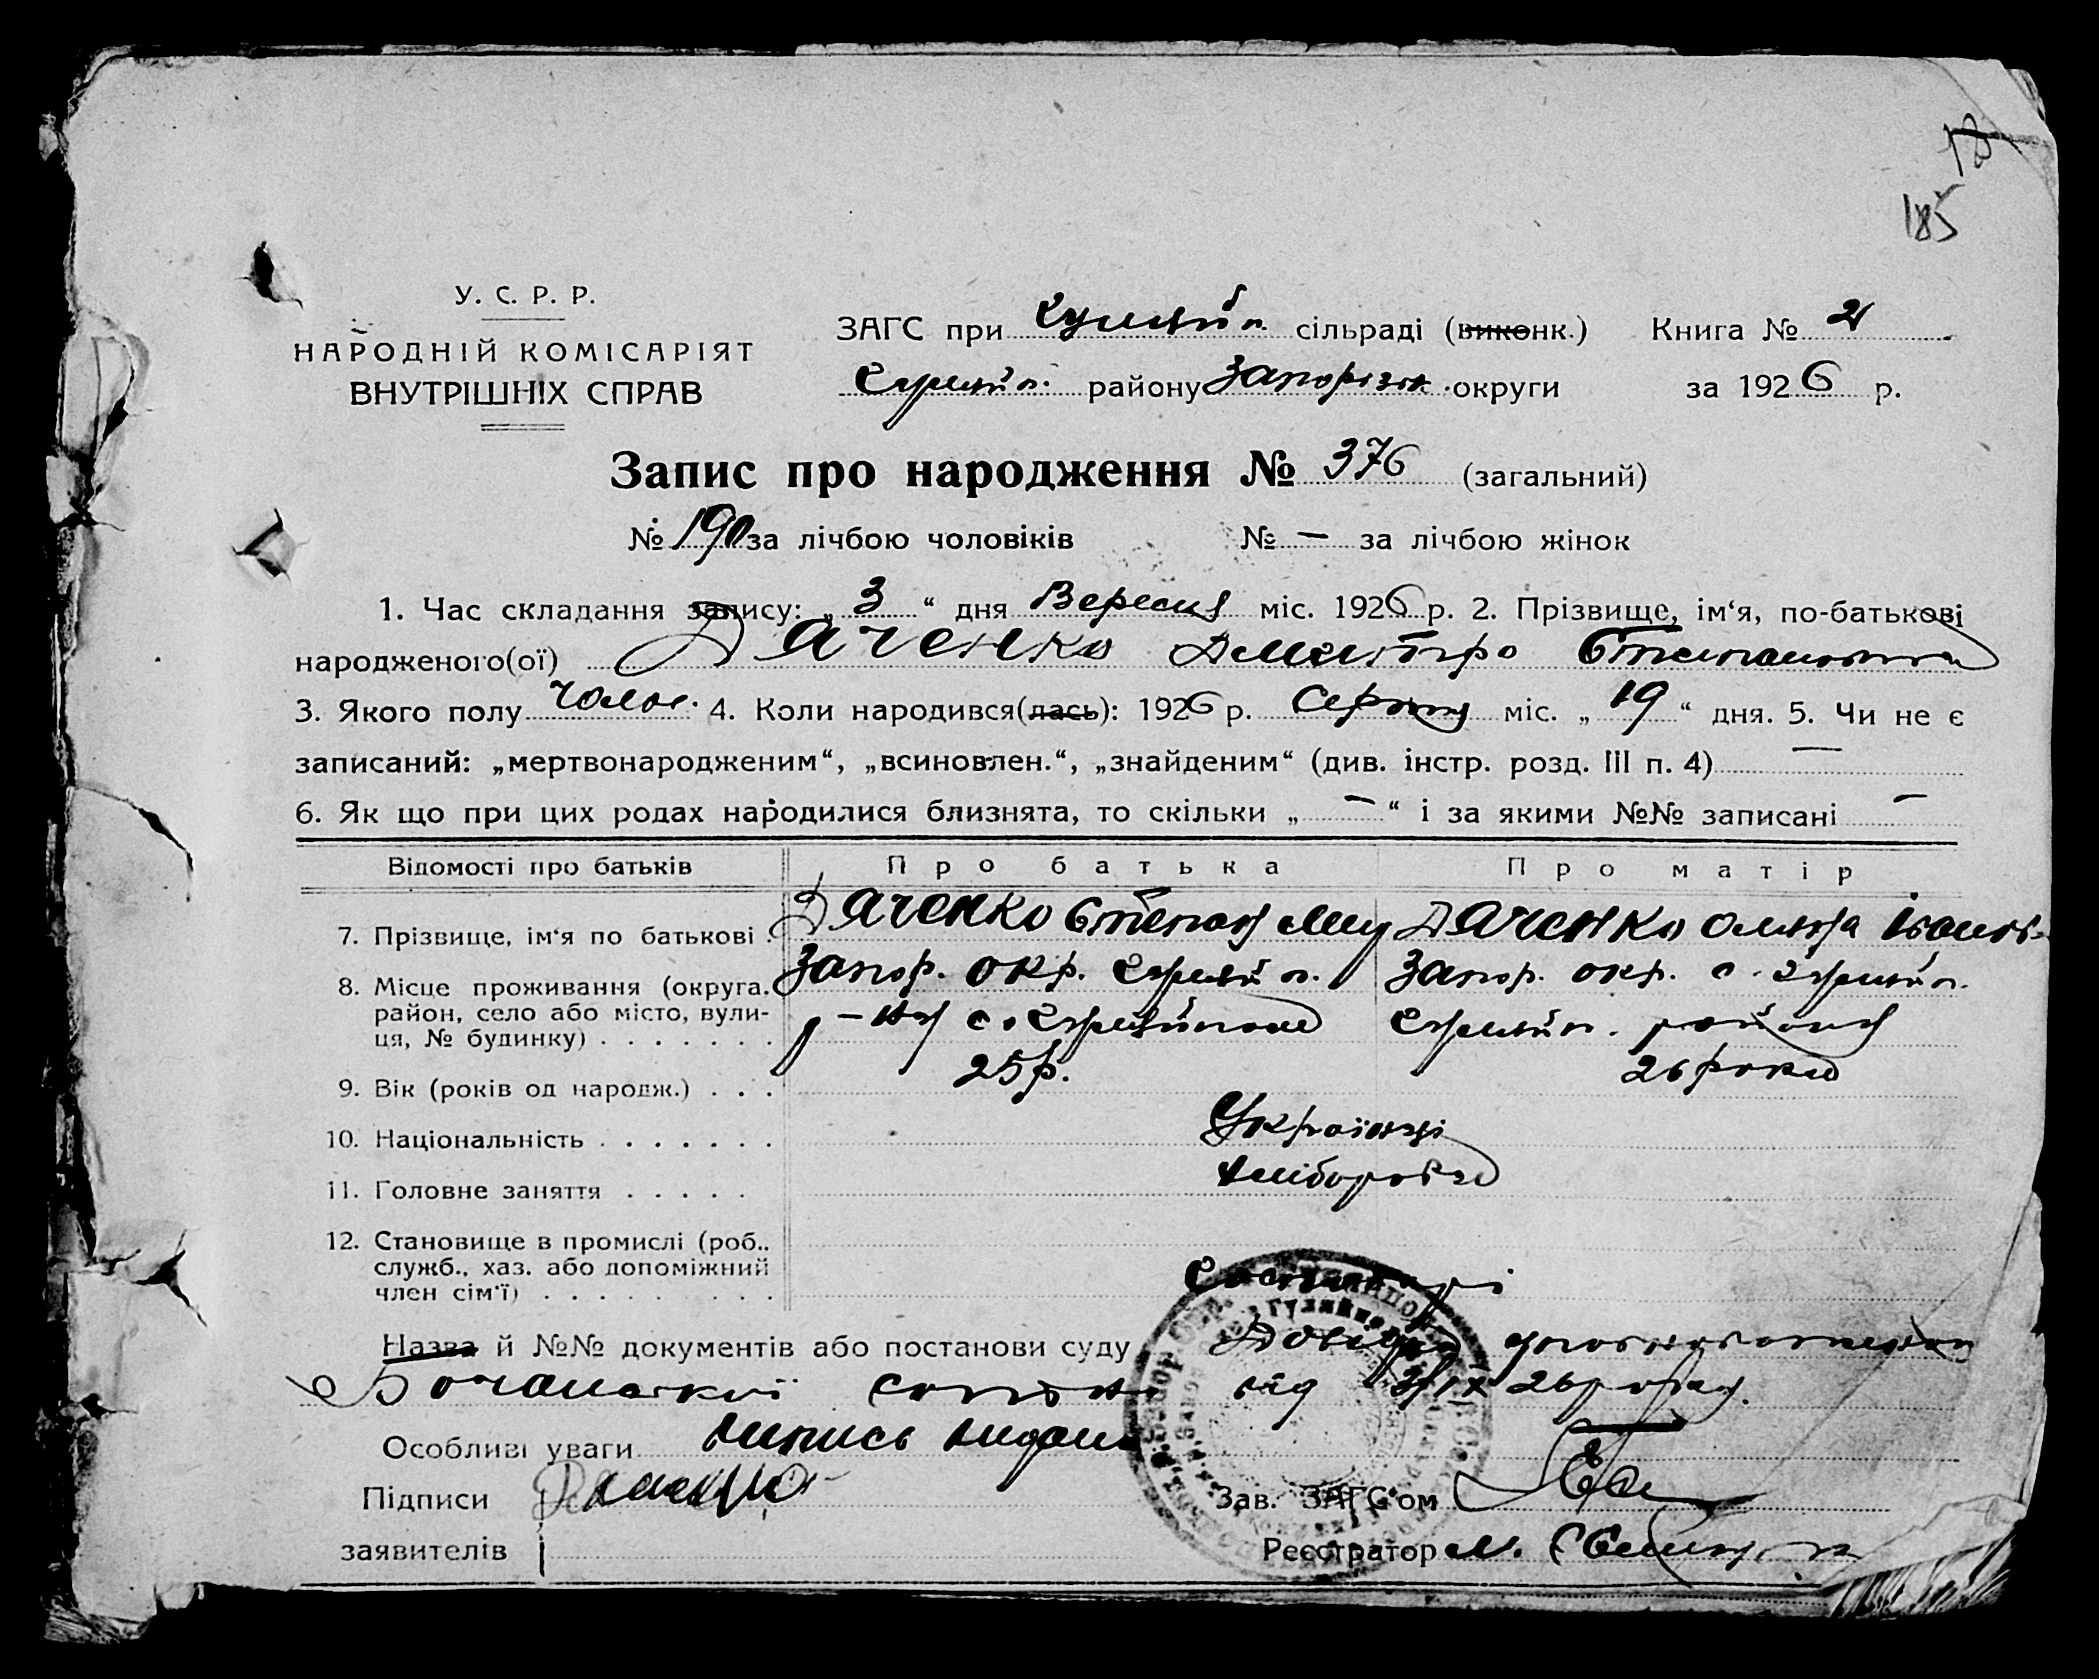 185
У. С. Р. Р.
НАРОДНІЙ КОМІСАРІЯТ
ВНУТРІШНІХ СПРАВ
ЗАГС при Гуляйп. сільраді (виконк.) Книга № 2
Гуляйп. району Запорізьк. округи за 1926 р.
Запис про народження № 376 (загальний)
№ 190 за лічбою чоловіків № — за лічбою жінок
1. Час складання запису: „3“ дня Вересня міс. 1926 р. 2. Прізвище, ім‘я, по-батькові
народженого(ої) Дяченко Дмитро Степанович
3. Якого полу чолов. 4. Коли народився(лась): 1926 р. Серпня міс. „19“ дня. 5. Чи не є
записаний: „мертвонародженим“, „всиновлен.“, „знайденим“ (див. інстр. розд. III п. 4) —
6. Як що при цих родах народилися близнята, то скільки „—“ і за якими №№ записані —
Відомості про батьків Про батька Про матір
7. Прізвище, ім‘я по батькові . Дяченко Степан Дяченко Ольга Іванів.
8. Місце проживання (округа, район, село або місто, вулиця, № будинку) . . . . . . . Запор. окр. Гуляйп. Запор. окр. с. Гуляйп.
р-ну с. Гуляйполе Гуляйп. району
9. Вік (років од народж.) . . . 25 р. 26 роки
10. Національність . . . . . . . Українці
11. Головне заняття . . . . . Хлібороби
12. Становище в промислі (роб., служб., хаз. або допоміжний член сім‘ї) . . . . . . . . .
Назва й №№ документів або постанови суду Довідка уповноваженого
сотні від 3/IX 26 року.
Особливі уваги випись видана
Підписи
заявителів
Зав. ЗАГС‘ом
Реєстратор